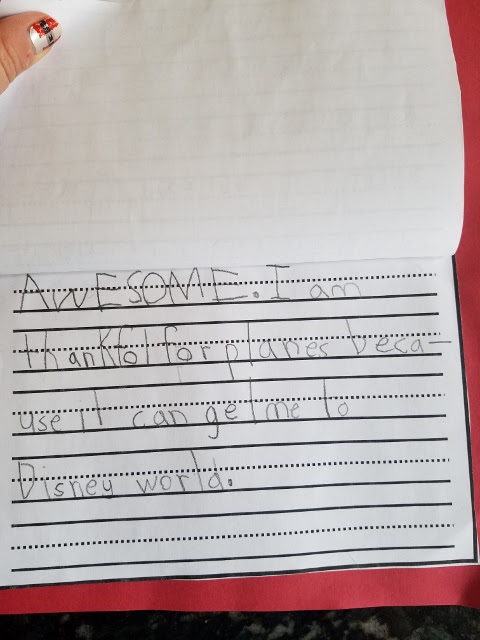 AWESOME. I am
thankfol for planes beca-
use it can get me to
Disney world.